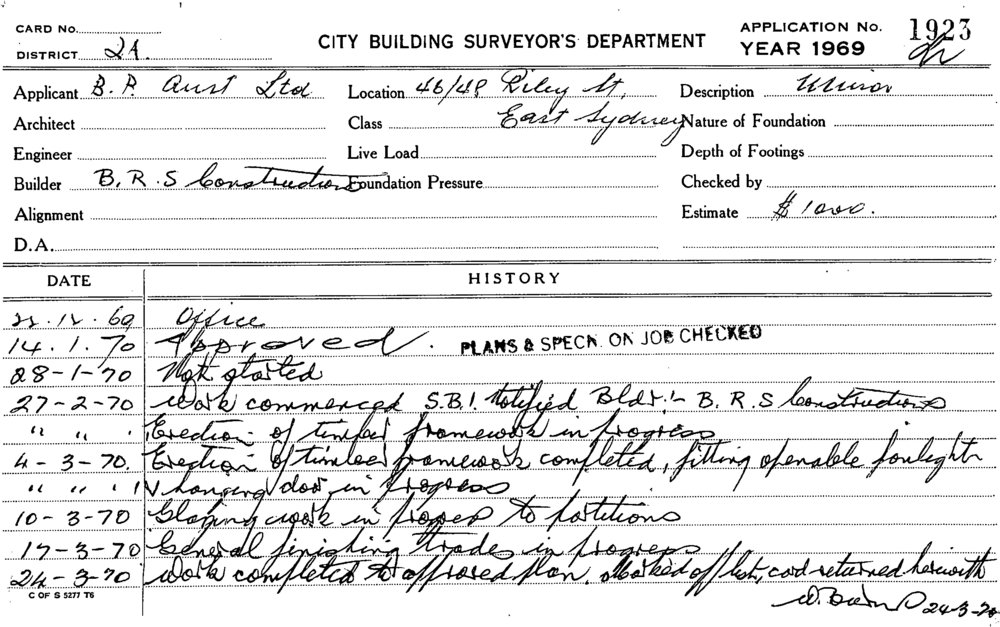 CARD No.
DISTRICT 2A.
CITY BUILDING SURVEYOR'S DEPARTMENT
APPLICATION No. 1923
YEAR 1969
Applicant B. P. Aust Ltd Location 46/48 Riley St, Description Minor
Architect Class East Sydney Nature of Foundation
Engineer Live Load Depth of Footings
Builder B. R. S Constructions Foundation Pressure Checked by
Alignment Estimate $1000.
D.A.
DATE HISTORY
22.12.69 Office
14.1.70 Approved. PLANS & SPECN. ON JOB CHECKED
28-1-70 Not started
27-2-70 Work commenced S.B.I. Notified Bldr:- B. R. S Constructions
" " " Erection of timber framework in progress
4-3-70. Erection of timber framework completed, fitting openable
" " " hanging door in progress
10-3-70 Glazing work in progress to partitions
17-3-70 General finishing trades in progress
24-3-70 Work completed to approved plan. Marked off list, card returned herewith
C OF S 5277 T6
24-3-70